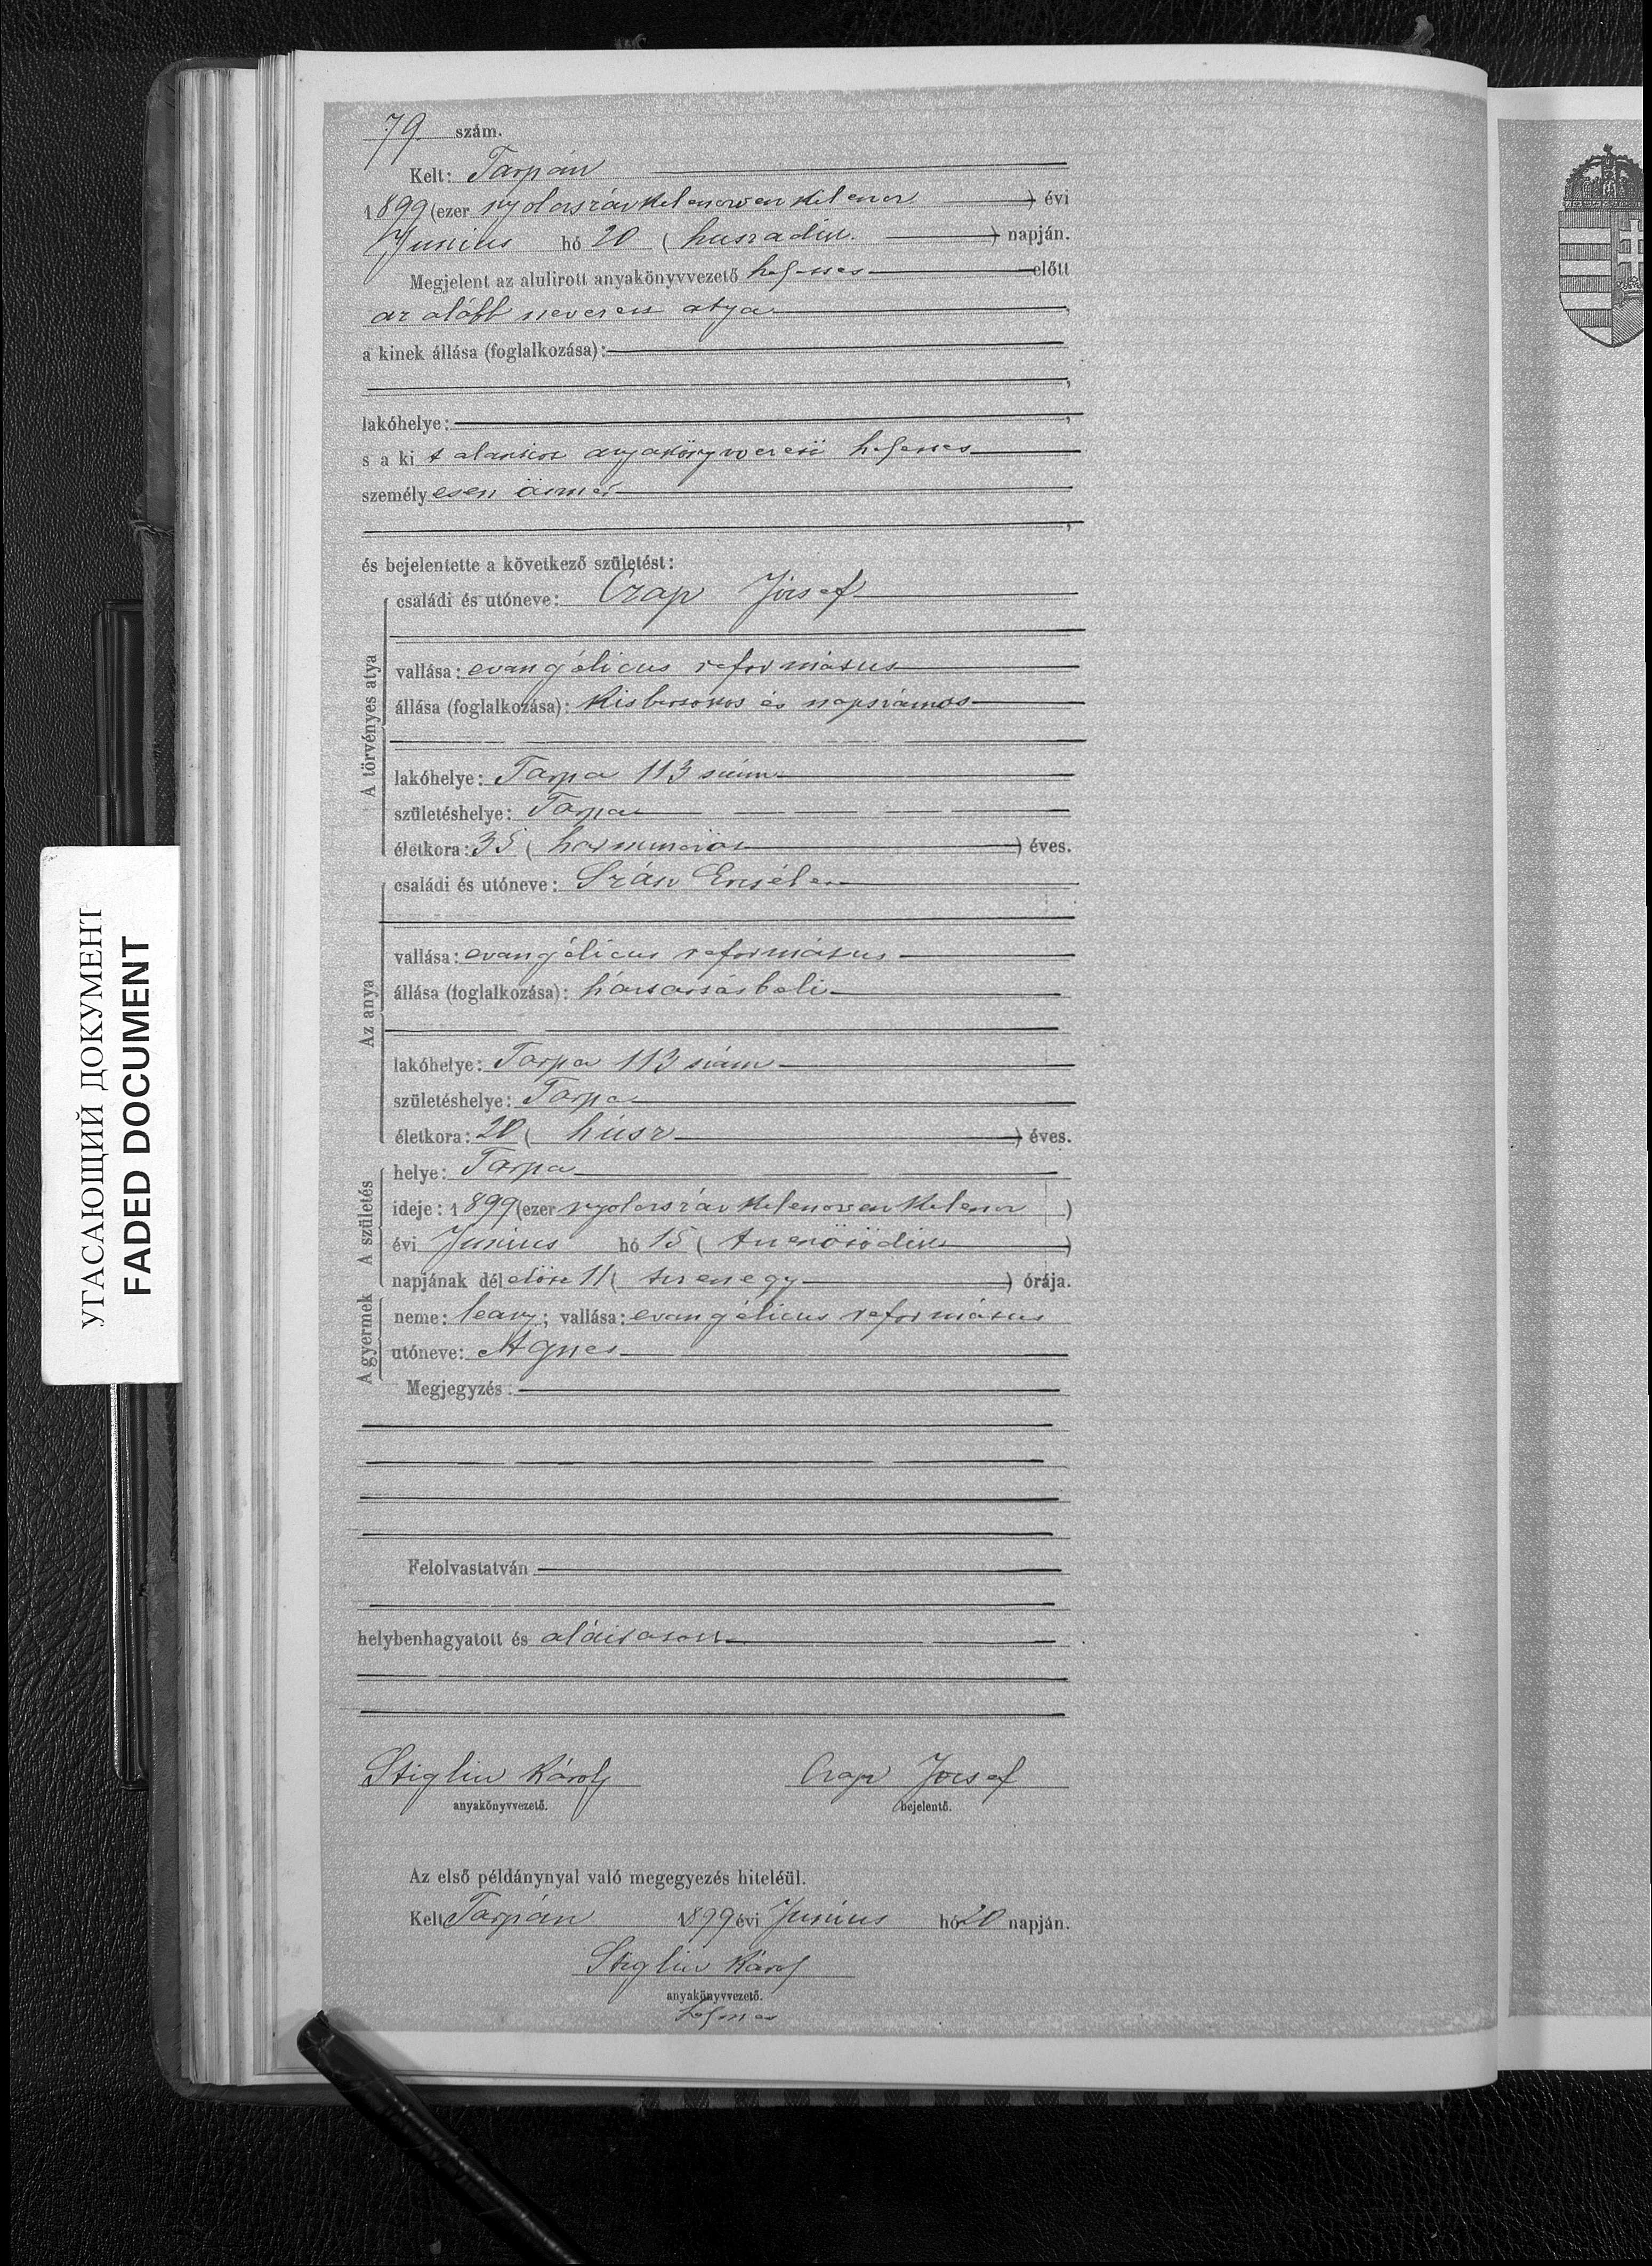 79. szám.
Kelt: Tarpán
1899 (ezer nyolcszázkilencvenkilenc) évi
Junius hó 20 (huszadik.) napján.
Megjelent az alulirott anyakönyvvezető helyettes előtt
az alább nevezett atya,
a kinek állása (foglalkozása):
,
lakóhelye: ,
s a ki t alantirt anyakönyvvezető helyettes
személyesen ösmer
,
és bejelentette a következő születést:
A törvényes atya
családi és utóneve: Czap József
vallása: evangélicus református
állása (foglalkozása): kisbirtokos és napszámos
lakóhelye: Tarpa 113 szám
születéshelye: Tarpa
életkora: 35 (harmincöt) éves.
Az anya
családi és utóneve: Szász Erzsébet
vallása: evangélicus református
állása (foglalkozása): háztartásbeli
lakóhelye: Tarpa 113 szám
születéshelye: Tarpa
életkora: 20 (húsz) éves.
A születés
helye: Tarpa
ideje: 1899 (ezer nyolcszázkilencvenkilenc)
évi Junius hó 15 (tizenötödik)
napjának délelőtt 11 (tizenegy) órája.
A gyermek
neme: leány; vallása: evangélicus református
utóneve: Ágnes
Megjegyzés:
Felolvastatván
helybenhagyatott és aláiratott
Stiglin Károly Czap József
anyakönyvvezető. bejelentő.
Az első példánynyal való megegyezés hiteléül.
Kelt Tarpán 1899 évi Junius hó 20 napján.
Stiglin Károly
anyakönyvvezető.
helyettes
УГАСАЮЩИЙ ДОКУМЕНТ
FADED DOCUMENT